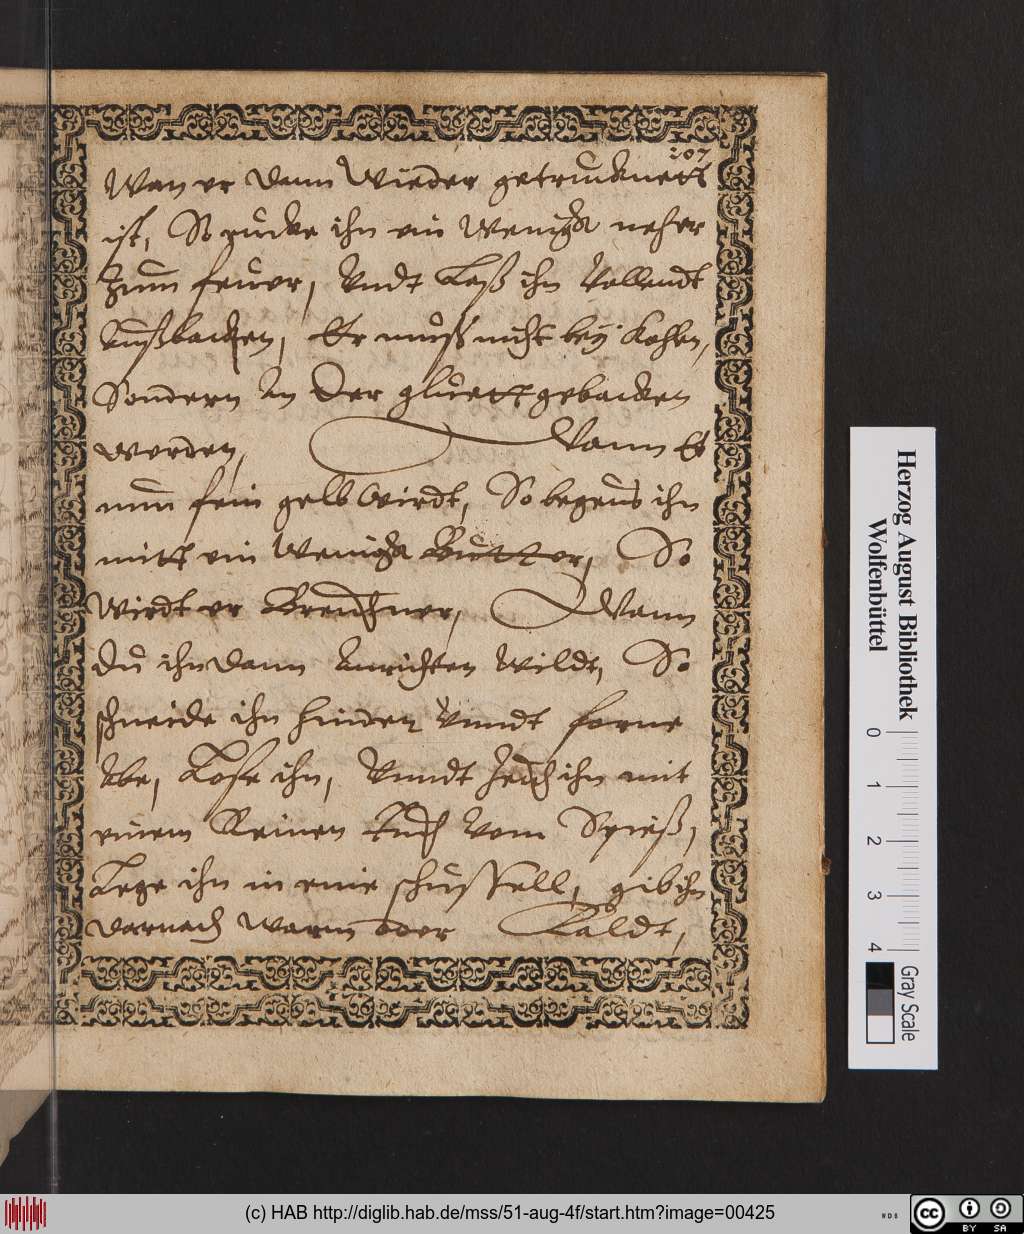 207
Wan er dann Wieder getrucknett
ist, So rucke ihn ein Wenigk neher
Zum feuer, Undt Laß ihn Vollendt
Außbacken, Er muß nicht bey Kohlen,
Sondern In Der gluett gebacken
werden, Wann Er
nun fein gelb Wirdt, So begeus ihn
mitt ein Wenigk Butter, So
Wirdt er Breuchner, Wann
du ihn dann Anrichten Wildt, So
schneide ihn hinden Vnndt forne
Abe, Lose ihn, Vnndt Zeuch ihn mit
einem Reinen tuch Vom Spieß,
Lege ihn in eine schussell, gib ihn
darnach warm oder Kaldt,
Herzog August Bibliothek
Wolfenbüttel
0 1 2 3 4
Gray Scale
(c) HAB http://diglib.hab.de/mss/51-aug-4f/start.htm?image=00425
WDB
cc BY SA